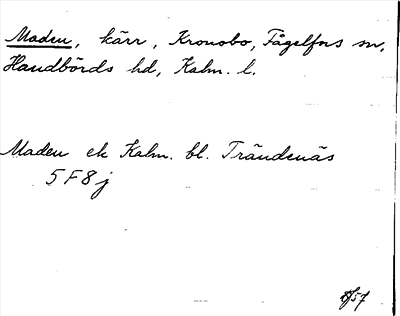 Maden, kärr, Kronobo, Fågelfors sn,
Handbörds hd, Kalm. l.
Maden ek Kalm. bl. Trändenäs
5 F 8 j